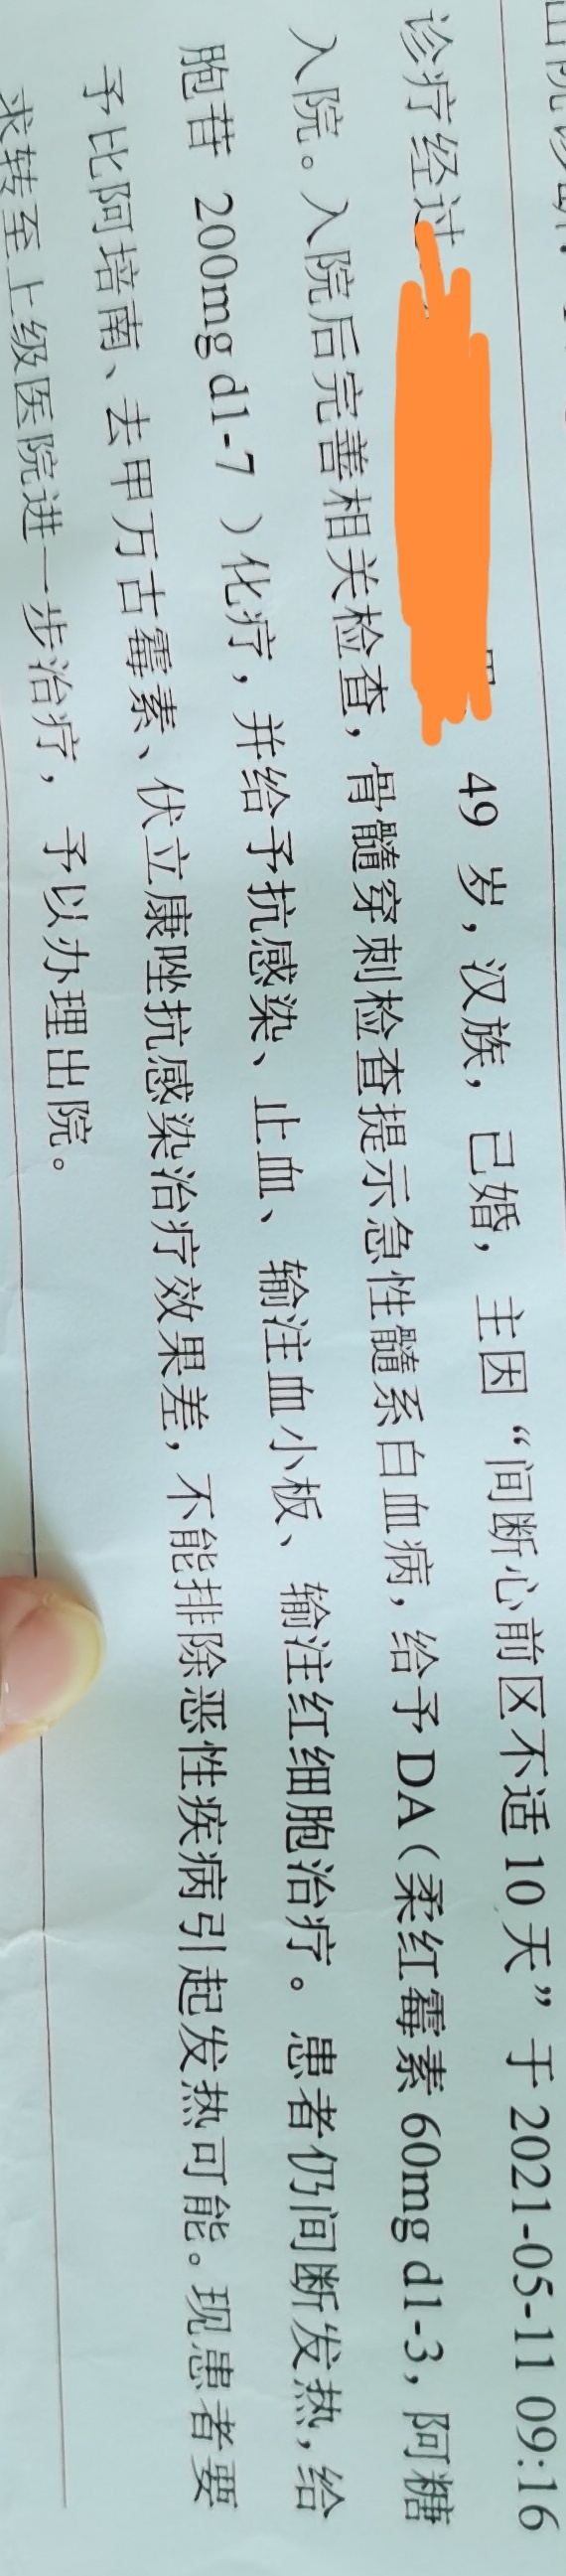 诊疗经过
49 岁，汉族，已婚，主因“间断心前区不适 10 天”于 2021-05-11 09:16
入院。入院后完善相关检查，骨髓穿刺检查提示急性髓系白血病，给予 DA（柔红霉素 60mg d1-3，阿糖
胞苷 200mg d1-7 ）化疗，并给予抗感染、止血、输注血小板、输注红细胞治疗。患者仍间断发热，给
予比阿培南、去甲万古霉素、伏立康唑抗感染治疗效果差，不能排除恶性疾病引起发热可能。现患者要
求转至上级医院进一步治疗，予以办理出院。